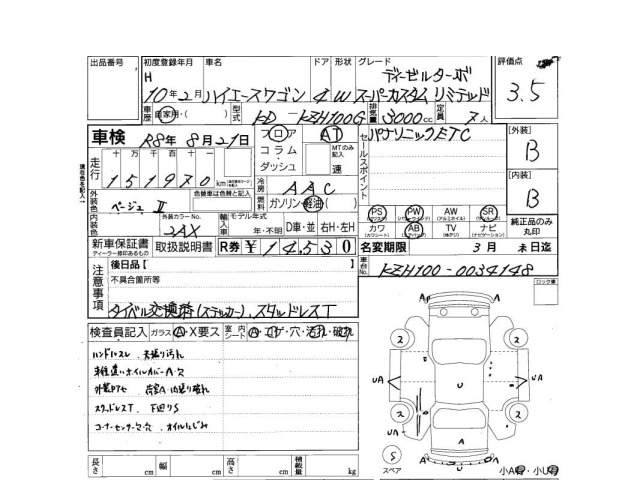 出品番号 初度登録年月 車名 ドア 形状 グレード 評価点
H ディーゼルターボ
10年2月 ハイエースワゴン 4 W スーパーカスタム リミテッド 3.5
車歴 自家用・( ) 型式 KD-KZH100G 排気量 3000cc 定員 人
車検 R8年8月21日 フロア AT セールスポイント パナソニックETC [外装]
コラム・ MTのみ記入 B
走行 十 万 千 百 十 ダッシュ 速
151970km 冷房 AAC [内装]
現在色名記入 外装色 ベージュII 色替車は色替と記入 燃料 ガソリン・軽油 B
PS PW AW SR
内装色 外装カラーNo. 2AX 輸入車 モデル年式 年・不明 D車・並 右H・左H カワ AB TV ナビ 純正品のみ丸印
新車保証書 取扱説明書 R券 ¥14,530 名変期限 3月 末日迄
ディーラー印あるもの
注意事項 後日品[ ] 車台No. KZH100-0034148
不具合箇所等 ロック車
タイベル交換済(ステッカー)、スタッドレスT
検査員記入 ガラス A・X要ス 室内シート
ハンドルスレ 天張り汚れ
車種違いホイルカバーA・穴
スタッドレスT 下廻りS
コーナーセンサー穴 オイルにじみ
長さ cm 幅 cm 高さ cm 積載量 kg
A A
2 2
UA U UA
2 2
UA A
S スペア UA 小A有・小U有